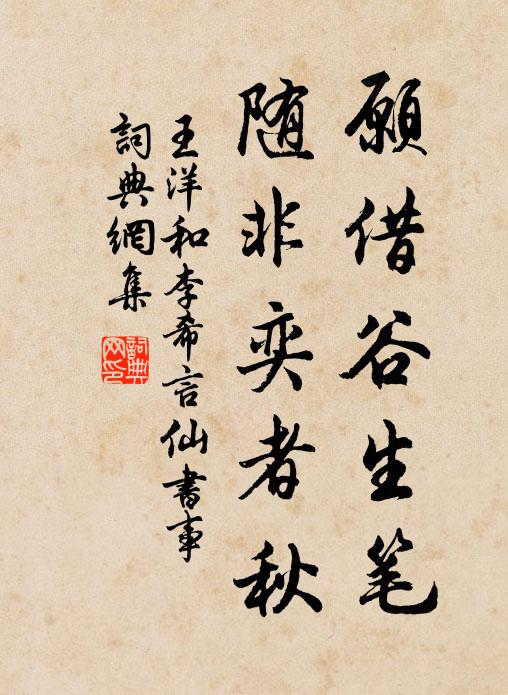 願借谷生笔
随非奕者秋
王洋和李希言仙書事
詞典網集
詞典网印